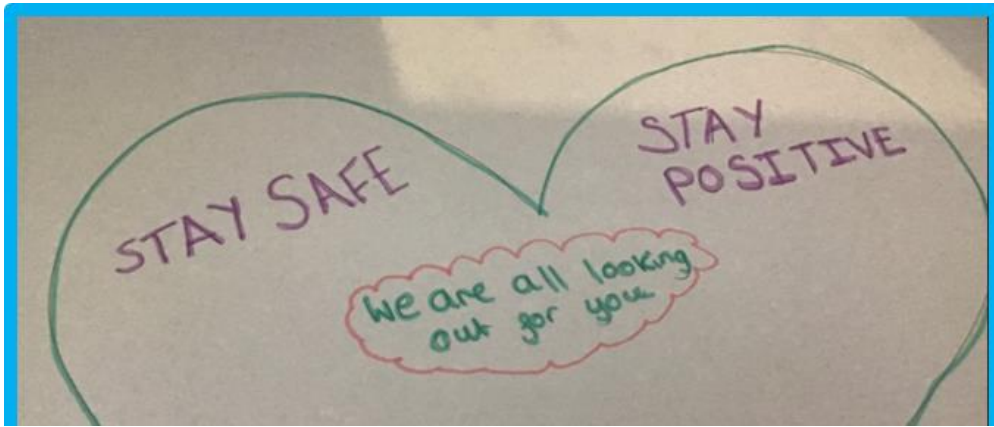 STAY SAFE
STAY
POSITIVE
We are all looking
out for you